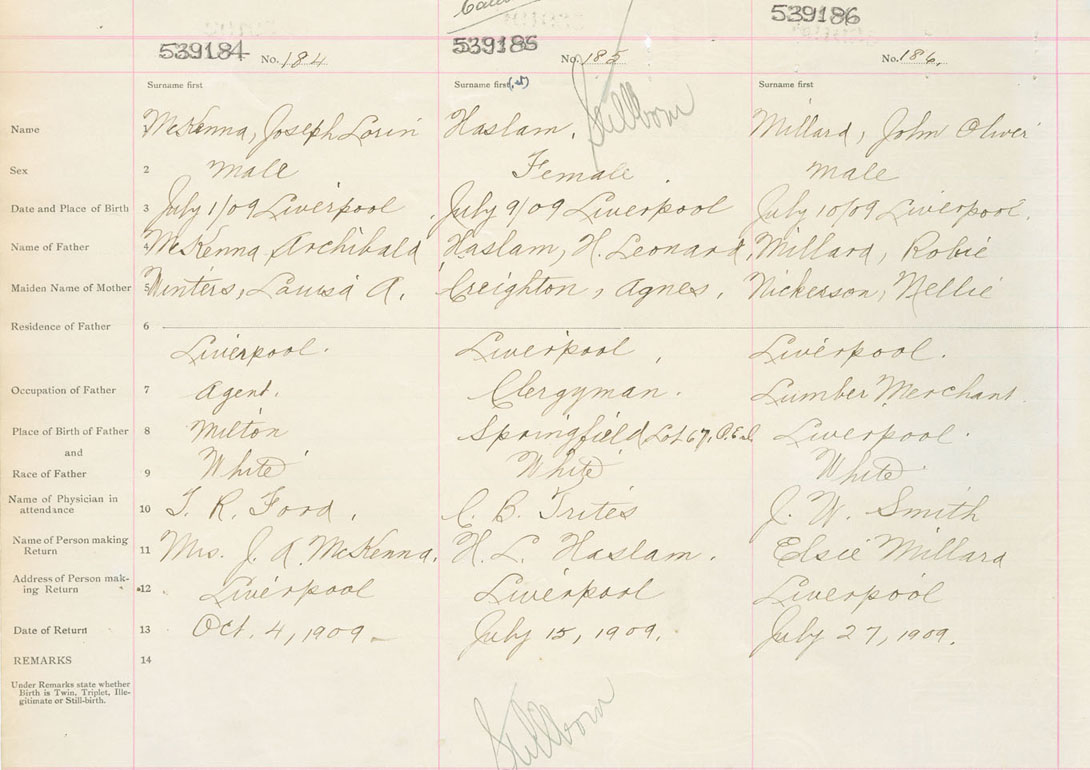 539184 539185 539186
No. 184 No. 185 No. 186.
Surname first Surname first Surname first
Stillborn
Name 1 McKenna, Joseph Lorin Haslam, Millard, John Oliver
Sex 2 Male Female. Male
Date and Place of Birth 3 July 1/09 Liverpool July 9/09 Liverpool July 10/09 Liverpool.
Name of Father 4 McKenna, Archibald Haslam, H. Leonard, Millard, Robie
Maiden Name of Mother 5 Winters, Louisa A. Creighton, Agnes. Nickerson, Nellie
Residence of Father 6
Liverpool. Liverpool, Liverpool.
Occupation of Father 7 Agent. Clergyman. Lumber Merchant.
Place of Birth of Father 8 Milton Springfield Lot 67, Liverpool.
and
Race of Father 9 White White White
Name of Physician in
attendance 10 T. R. Ford, C. B. Trites J. W. Smith
Name of Person making
Return 11 Mrs. J. A. McKenna. H. L. Haslam. Elsie Millard
Address of Person mak-
ing Return 12 Liverpool Liverpool Liverpool
Date of Return 13 Oct. 4, 1909 July 15, 1909. July 27, 1909.
REMARKS 14
Under Remarks state whether
Birth is Twin, Triplet, Ille-
gitimate or Still-birth.
Stillborn